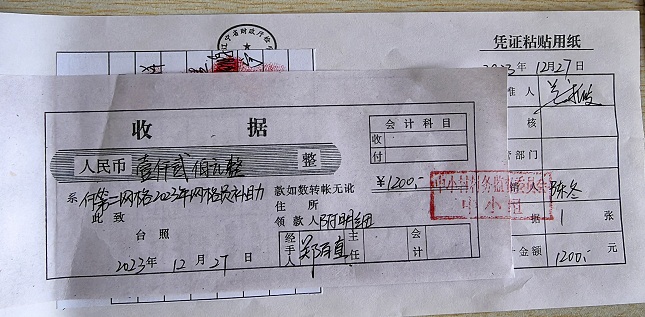 辽宁省财政厅
凭证粘贴用纸
2023年12月27日
准人
核
管部门
陈冬
据 1 张
金额 1200.- 元
收据
会计科目
收
付
人民币 壹仟贰佰元整 整
¥1200.-
系付第二网格2023年网格员补助 款如数转帐无讹
此致 住所
台照 领款人 附明细
2023年12月27日
经手人 郑百直 主任 会计
中小村村务监督委员会
中小村